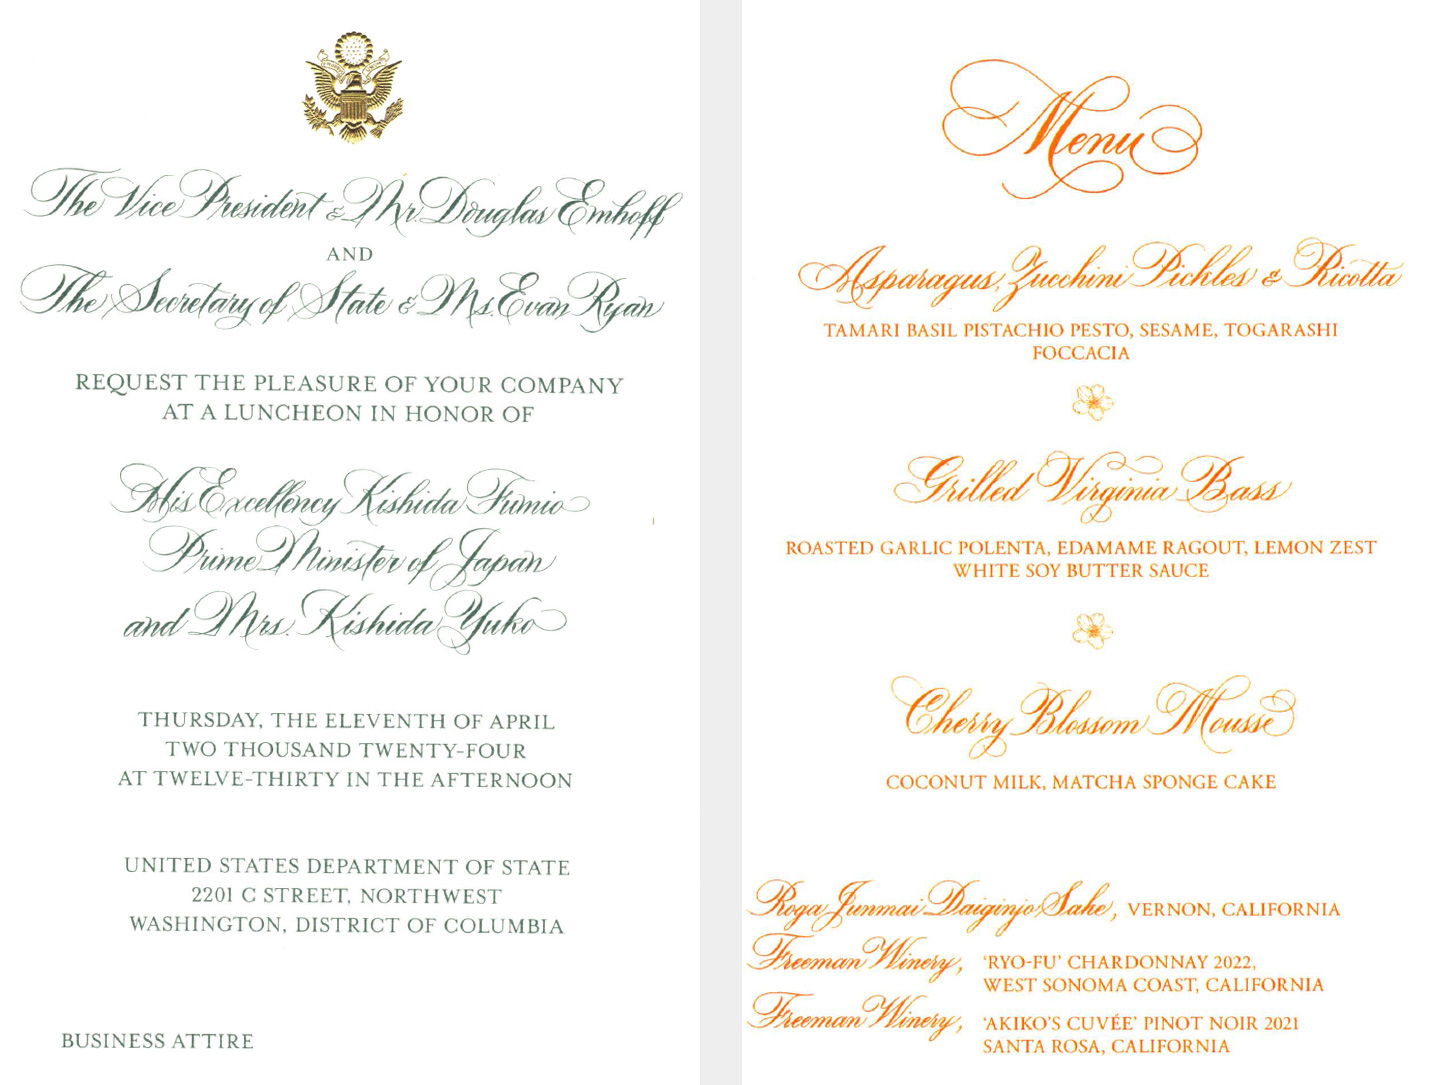 The Vice President & Mr. Douglas Emhoff
AND
The Secretary of State & Ms. Evan Ryan
REQUEST THE PLEASURE OF YOUR COMPANY
AT A LUNCHEON IN HONOR OF
His Excellency Kishida Fumio
Prime Minister of Japan
and Mrs. Kishida Yuko
THURSDAY, THE ELEVENTH OF APRIL
TWO THOUSAND TWENTY-FOUR
AT TWELVE-THIRTY IN THE AFTERNOON
UNITED STATES DEPARTMENT OF STATE
2201 C STREET, NORTHWEST
WASHINGTON, DISTRICT OF COLUMBIA
BUSINESS ATTIRE
Menu
Asparagus, Zucchini Pickles & Ricotta
TAMARI BASIL PISTACHIO PESTO, SESAME, TOGARASHI
FOCCACIA
Grilled Virginia Bass
ROASTED GARLIC POLENTA, EDAMAME RAGOUT, LEMON ZEST
WHITE SOY BUTTER SAUCE
Cherry Blossom Mousse
COCONUT MILK, MATCHA SPONGE CAKE
Roga Junmai Daiginjo Sake, VERNON, CALIFORNIA
Freeman Winery, 'RYO-FU' CHARDONNAY 2022,
WEST SONOMA COAST, CALIFORNIA
Freeman Winery, 'AKIKO'S CUVÉE' PINOT NOIR 2021
SANTA ROSA, CALIFORNIA